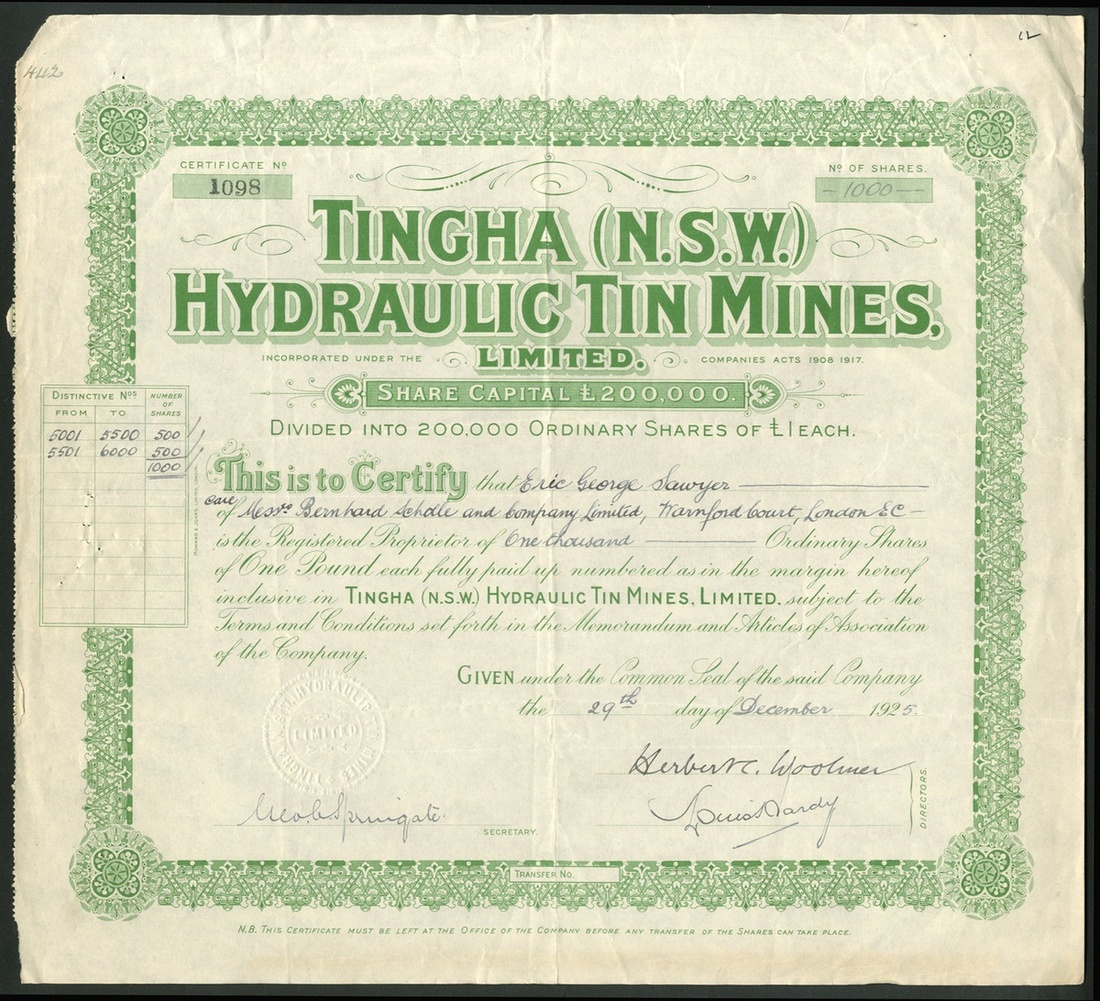 442
12
CERTIFICATE Nº
1098
Nº OF SHARES.
—1000—
TINGHA (N.S.W.)
HYDRAULIC TIN MINES,
LIMITED.
INCORPORATED UNDER THE COMPANIES ACTS 1908 1917.
SHARE CAPITAL £200,000.
DIVIDED INTO 200,000 ORDINARY SHARES OF £1 EACH.
DISTINCTIVE Nos NUMBER OF SHARES
FROM TO
5001 5500 500
5501 6000 500
1000
This is to Certify that Eric George Sawyer
care of Messrs Bernhard Scholle and Company Limited, Warnford Court, London EC
is the Registered Proprietor of One thousand Ordinary Shares
of One Pound each fully paid up numbered as in the margin hereof
inclusive in TINGHA (N.S.W.) HYDRAULIC TIN MINES, LIMITED, subject to the
Terms and Conditions set forth in the Memorandum and Articles of Association
of the Company.
GIVEN under the Common Seal of the said Company
the 29th day of December 1925.
LIMITED
Herbert C. Woolmer
Louis Hardy
DIRECTORS.
Geo. C. Springate
SECRETARY.
TRANSFER NO.
N.B. THIS CERTIFICATE MUST BE LEFT AT THE OFFICE OF THE COMPANY BEFORE ANY TRANSFER OF THE SHARES CAN TAKE PLACE.